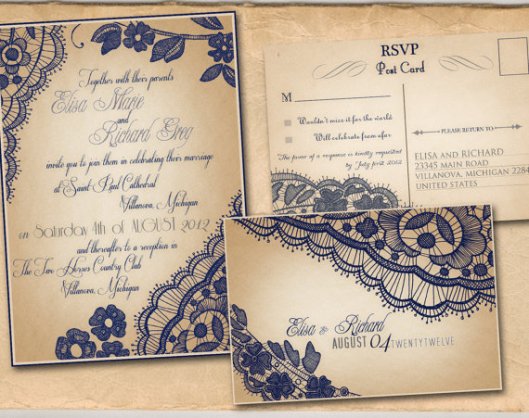 Together with their parents
Elisa Marie
and
Richard Greg
invite you to join them in celebrating their marriage
at Saint Paul Cathedral
Villanova, Michigan
on Saturday 4th of AUGUST 2012
and thereafter to a reception in
The Two Horses Country Club
Villanova, Michigan
RSVP
Post Card
M
Wouldn't miss it for the world
Will celebrate from afar
The favor of a response is kindly requested
by July first, 2012
PLEASE RETURN TO
ELISA and RICHARD
23345 MAIN ROAD
VILLANOVA, MICHIGAN 2284
UNITED STATES
Elisa & Richard
AUGUST 04 TWENTYTWELVE